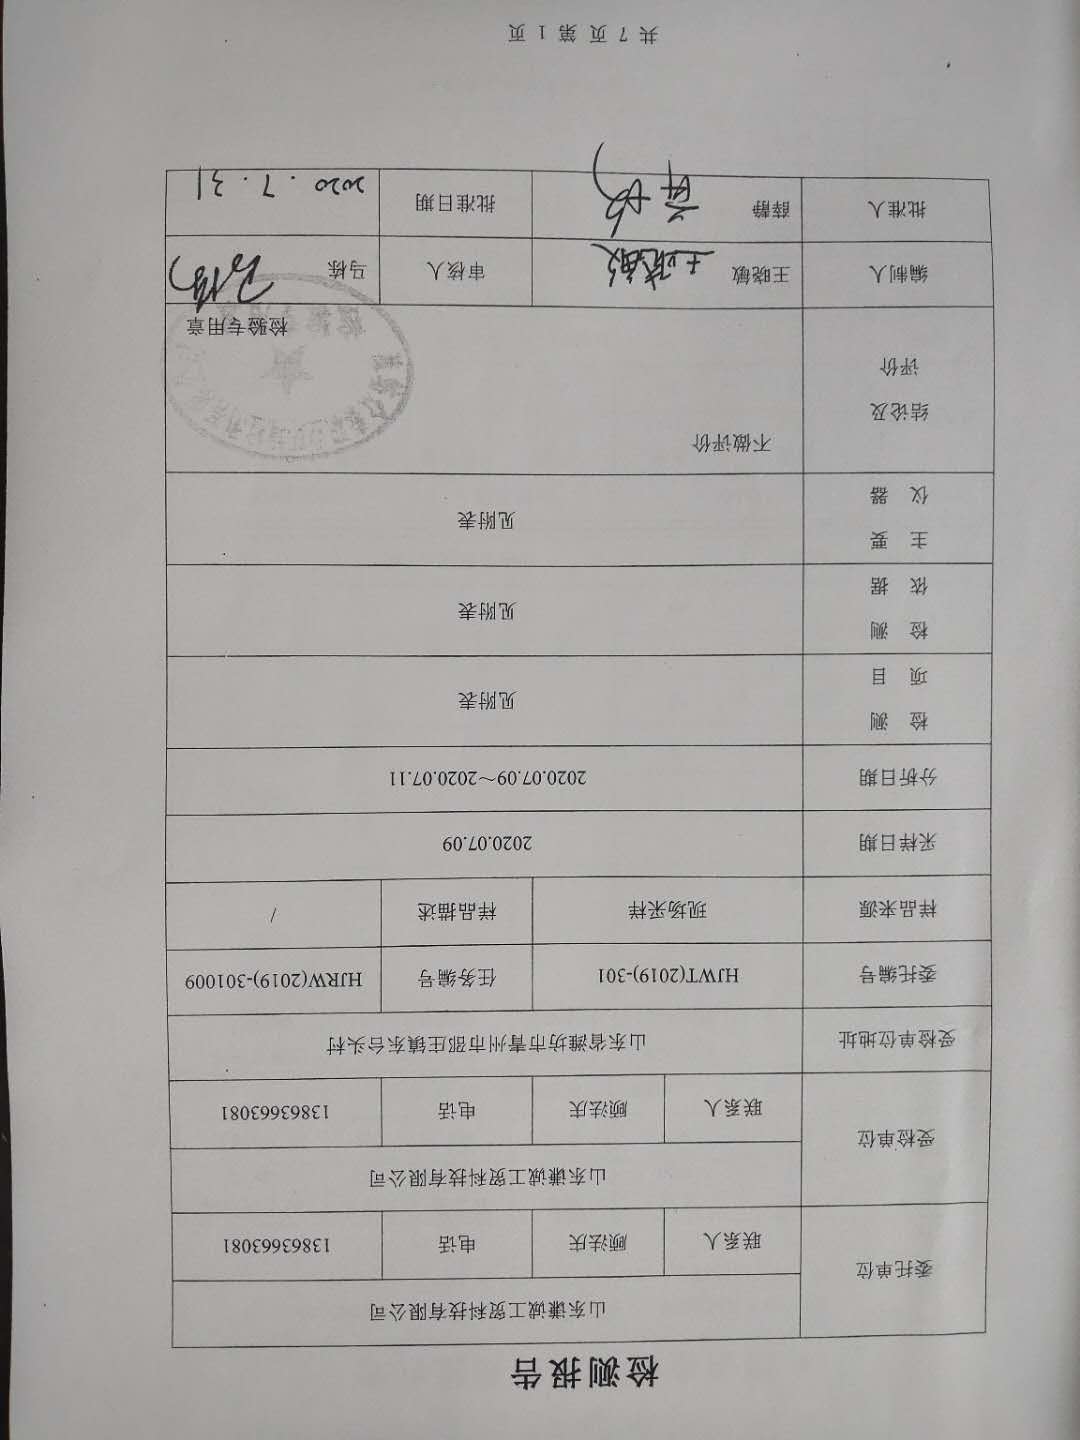 检测报告
委托单位
山东谦诚工贸科技有限公司
联系人 顾法庆 电话 13863663081
受检单位
山东谦诚工贸科技有限公司
联系人 顾法庆 电话 13863663081
受检单位地址 山东省潍坊市青州市邵庄镇东台头村
委托编号 HJWT(2019)-301 任务编号 HJRW(2019)-301009
样品来源 现场采样 样品描述 /
采样日期 2020.07.09
分析日期 2020.07.09～2020.07.11
检 测
项 目
见附表
检 测
依 据
见附表
主 要
仪 器
见附表
结论及
评价
不做评价
检验专用章
编制人 王晓敏 王晓敏 审核人 马栋
批准人 薛静 薛静 批准日期 2020.7.31
共 7 页 第 1 页